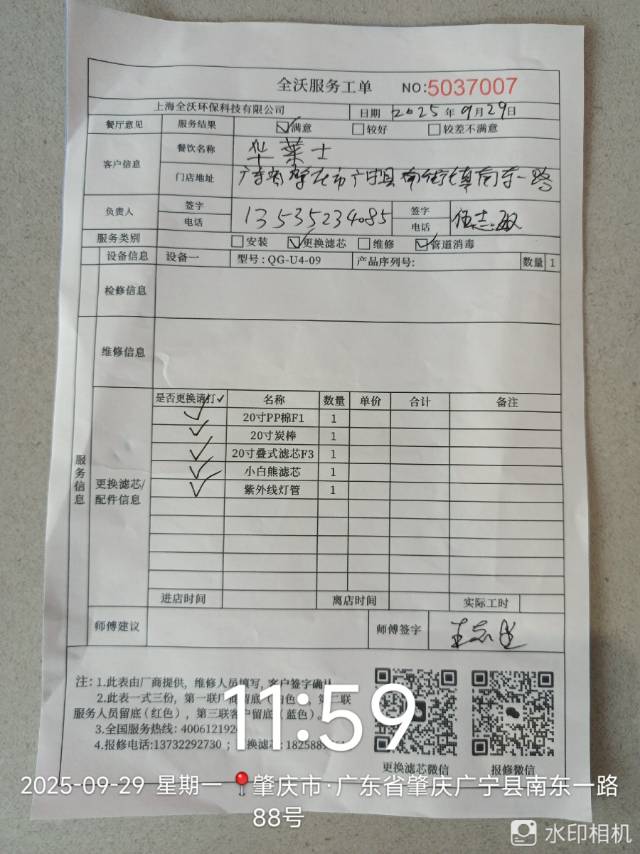 全沃服务工单 NO:5037007
上海全沃环保科技有限公司 日期 2025年9月29日
餐厅意见 服务结果 ☑满意 □较好 □较差不满意
客户信息 餐饮名称 华莱士
门店地址 广东省肇庆市广宁县南街镇南东一路
负责人 签字 电话 13535234085 签字 电话
服务类别 □安装 ☑更换滤芯 □维修 ☑管道消毒
设备信息 设备一 型号:QG-U4-09 产品序列号: 数量 1
检修信息
维修信息
服务信息
更换滤芯/配件信息
是否更换请打✓ 名称 数量 单价 合计 备注
✓ 20寸PP棉F1 1
✓ 20寸炭棒 1
✓ 20寸叠式滤芯F3 1
✓ 小白熊滤芯 1
✓ 紫外线灯管 1
进店时间 离店时间 实际工时
师傅建议 师傅签字
注:1.此表由厂商提供,维修人员填写,客户签字确认
2.此表一式三份,第一联厂商留底
服务人员留底(红色),第三联客户留底(蓝色)。
3.全国服务热线:4006121926
4.报修电话:13732292730
更换滤芯微信 报修微信
11:59
2025-09-29 星期一 肇庆市·广东省肇庆广宁县南东一路
88号
水印相机